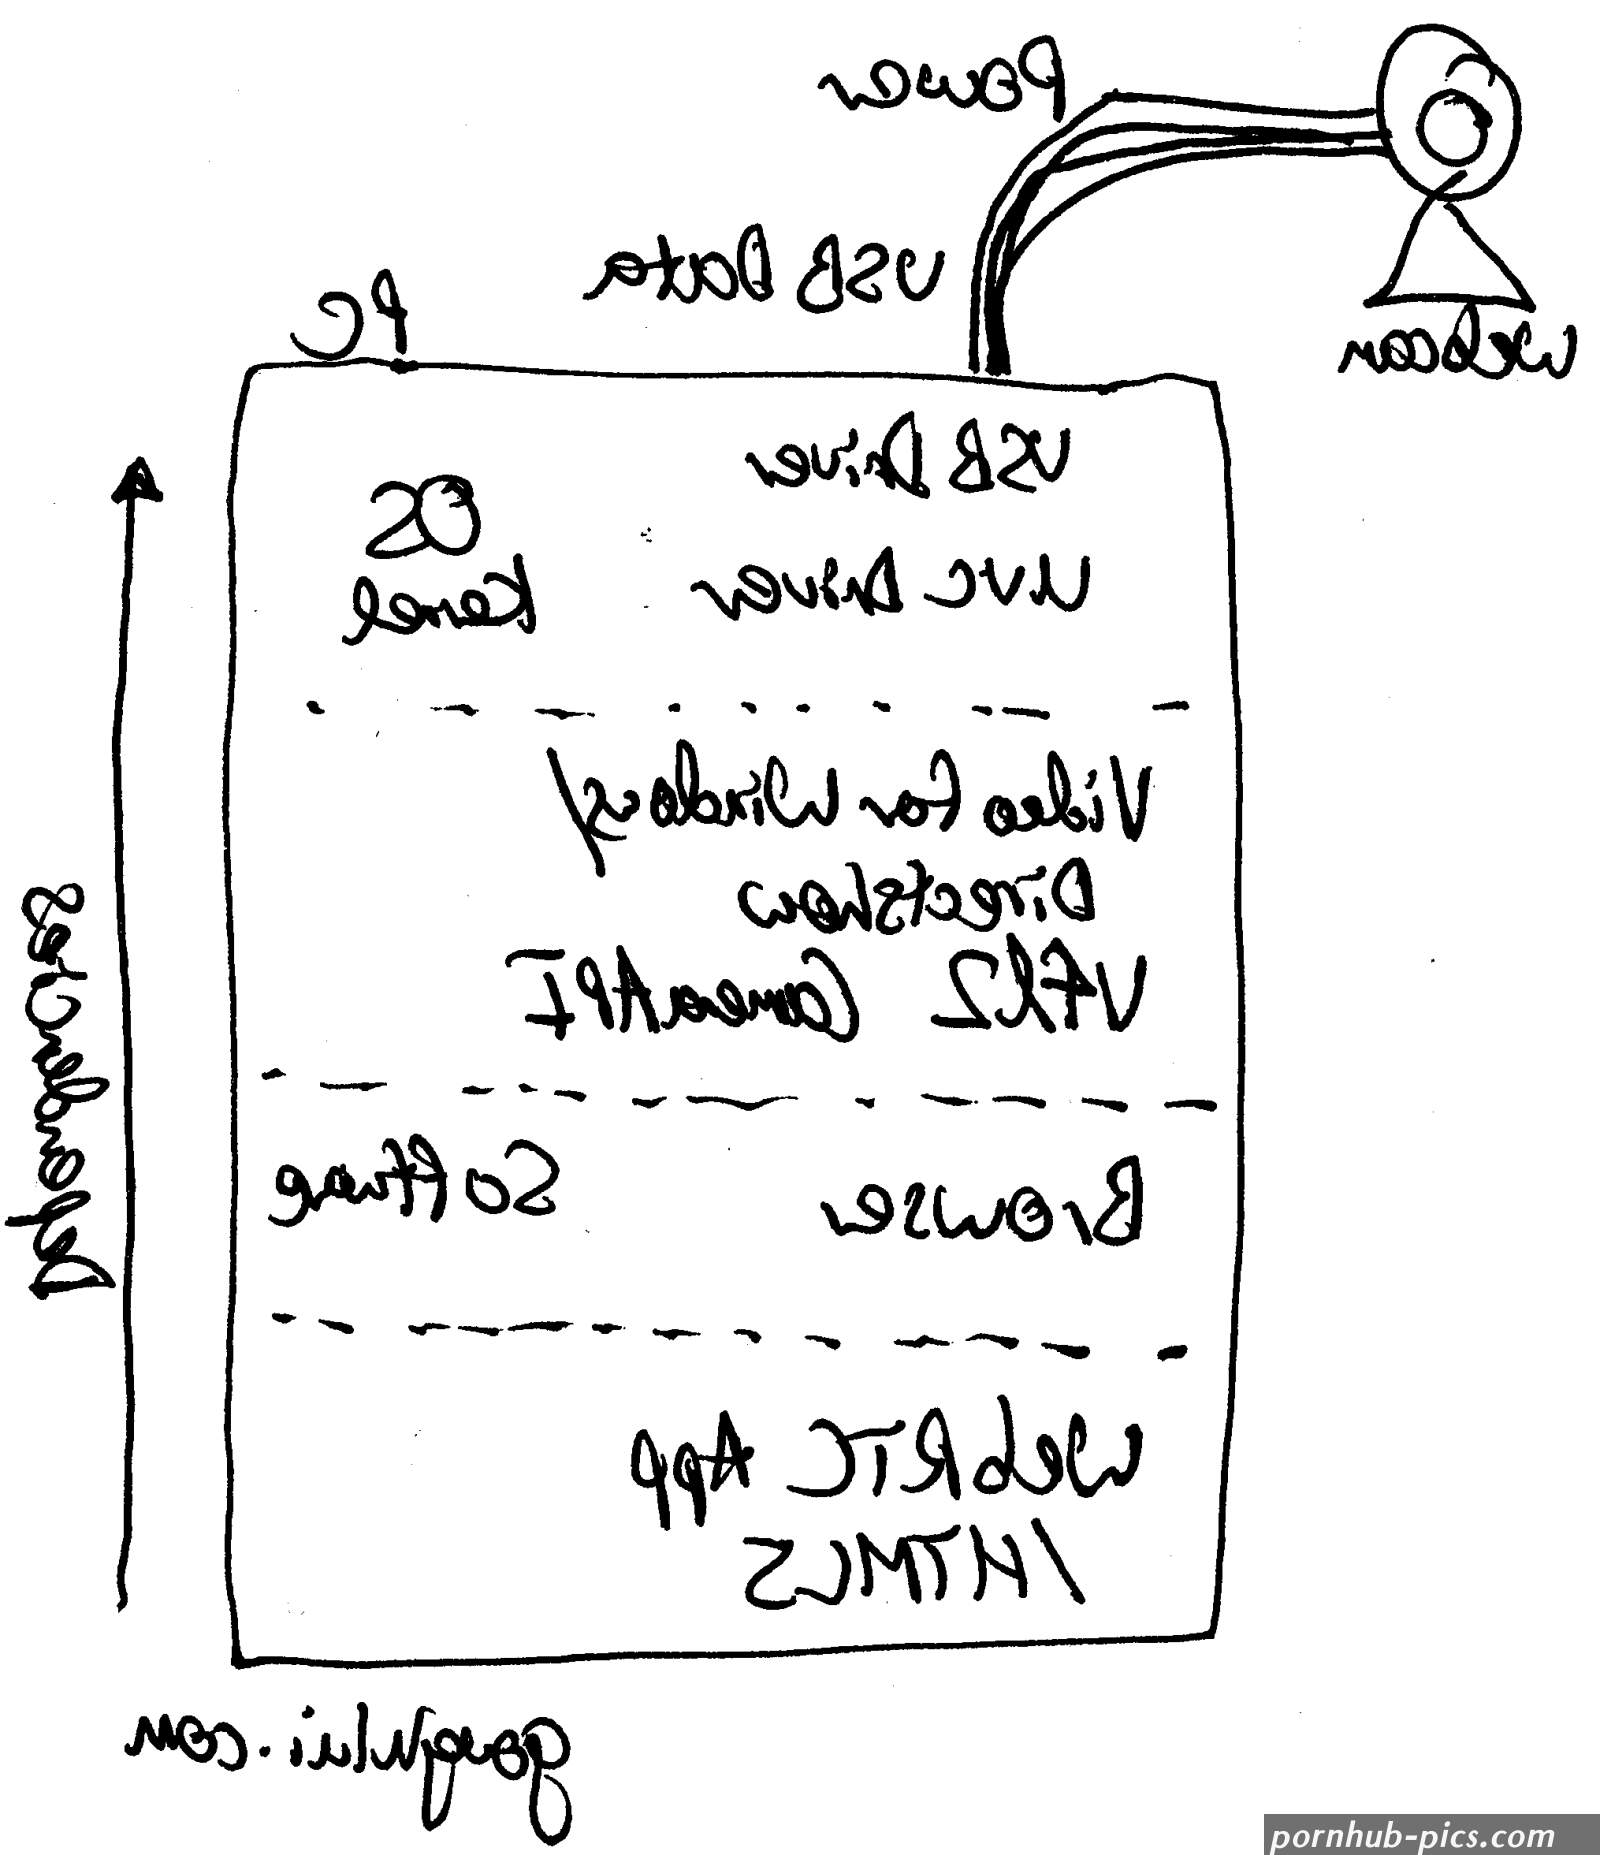 Power
USB Data
PC
Webcam
USB Driver
OS
UVC Driver
Kernel
Video For Windows/
Directshow
V4L2 CameraAPI
Browser
Software
WebRTC App
/HTML5
pornhub-pics.com